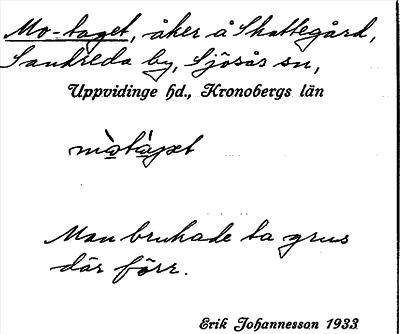 Mo-taget, åker å Skattegård,
Sandreda by, Sjösås sn,
Uppvidinge hd., Kronobergs län
mòtàgət
Man brukade ta grus
där förr.
Erik Johannesson 1933